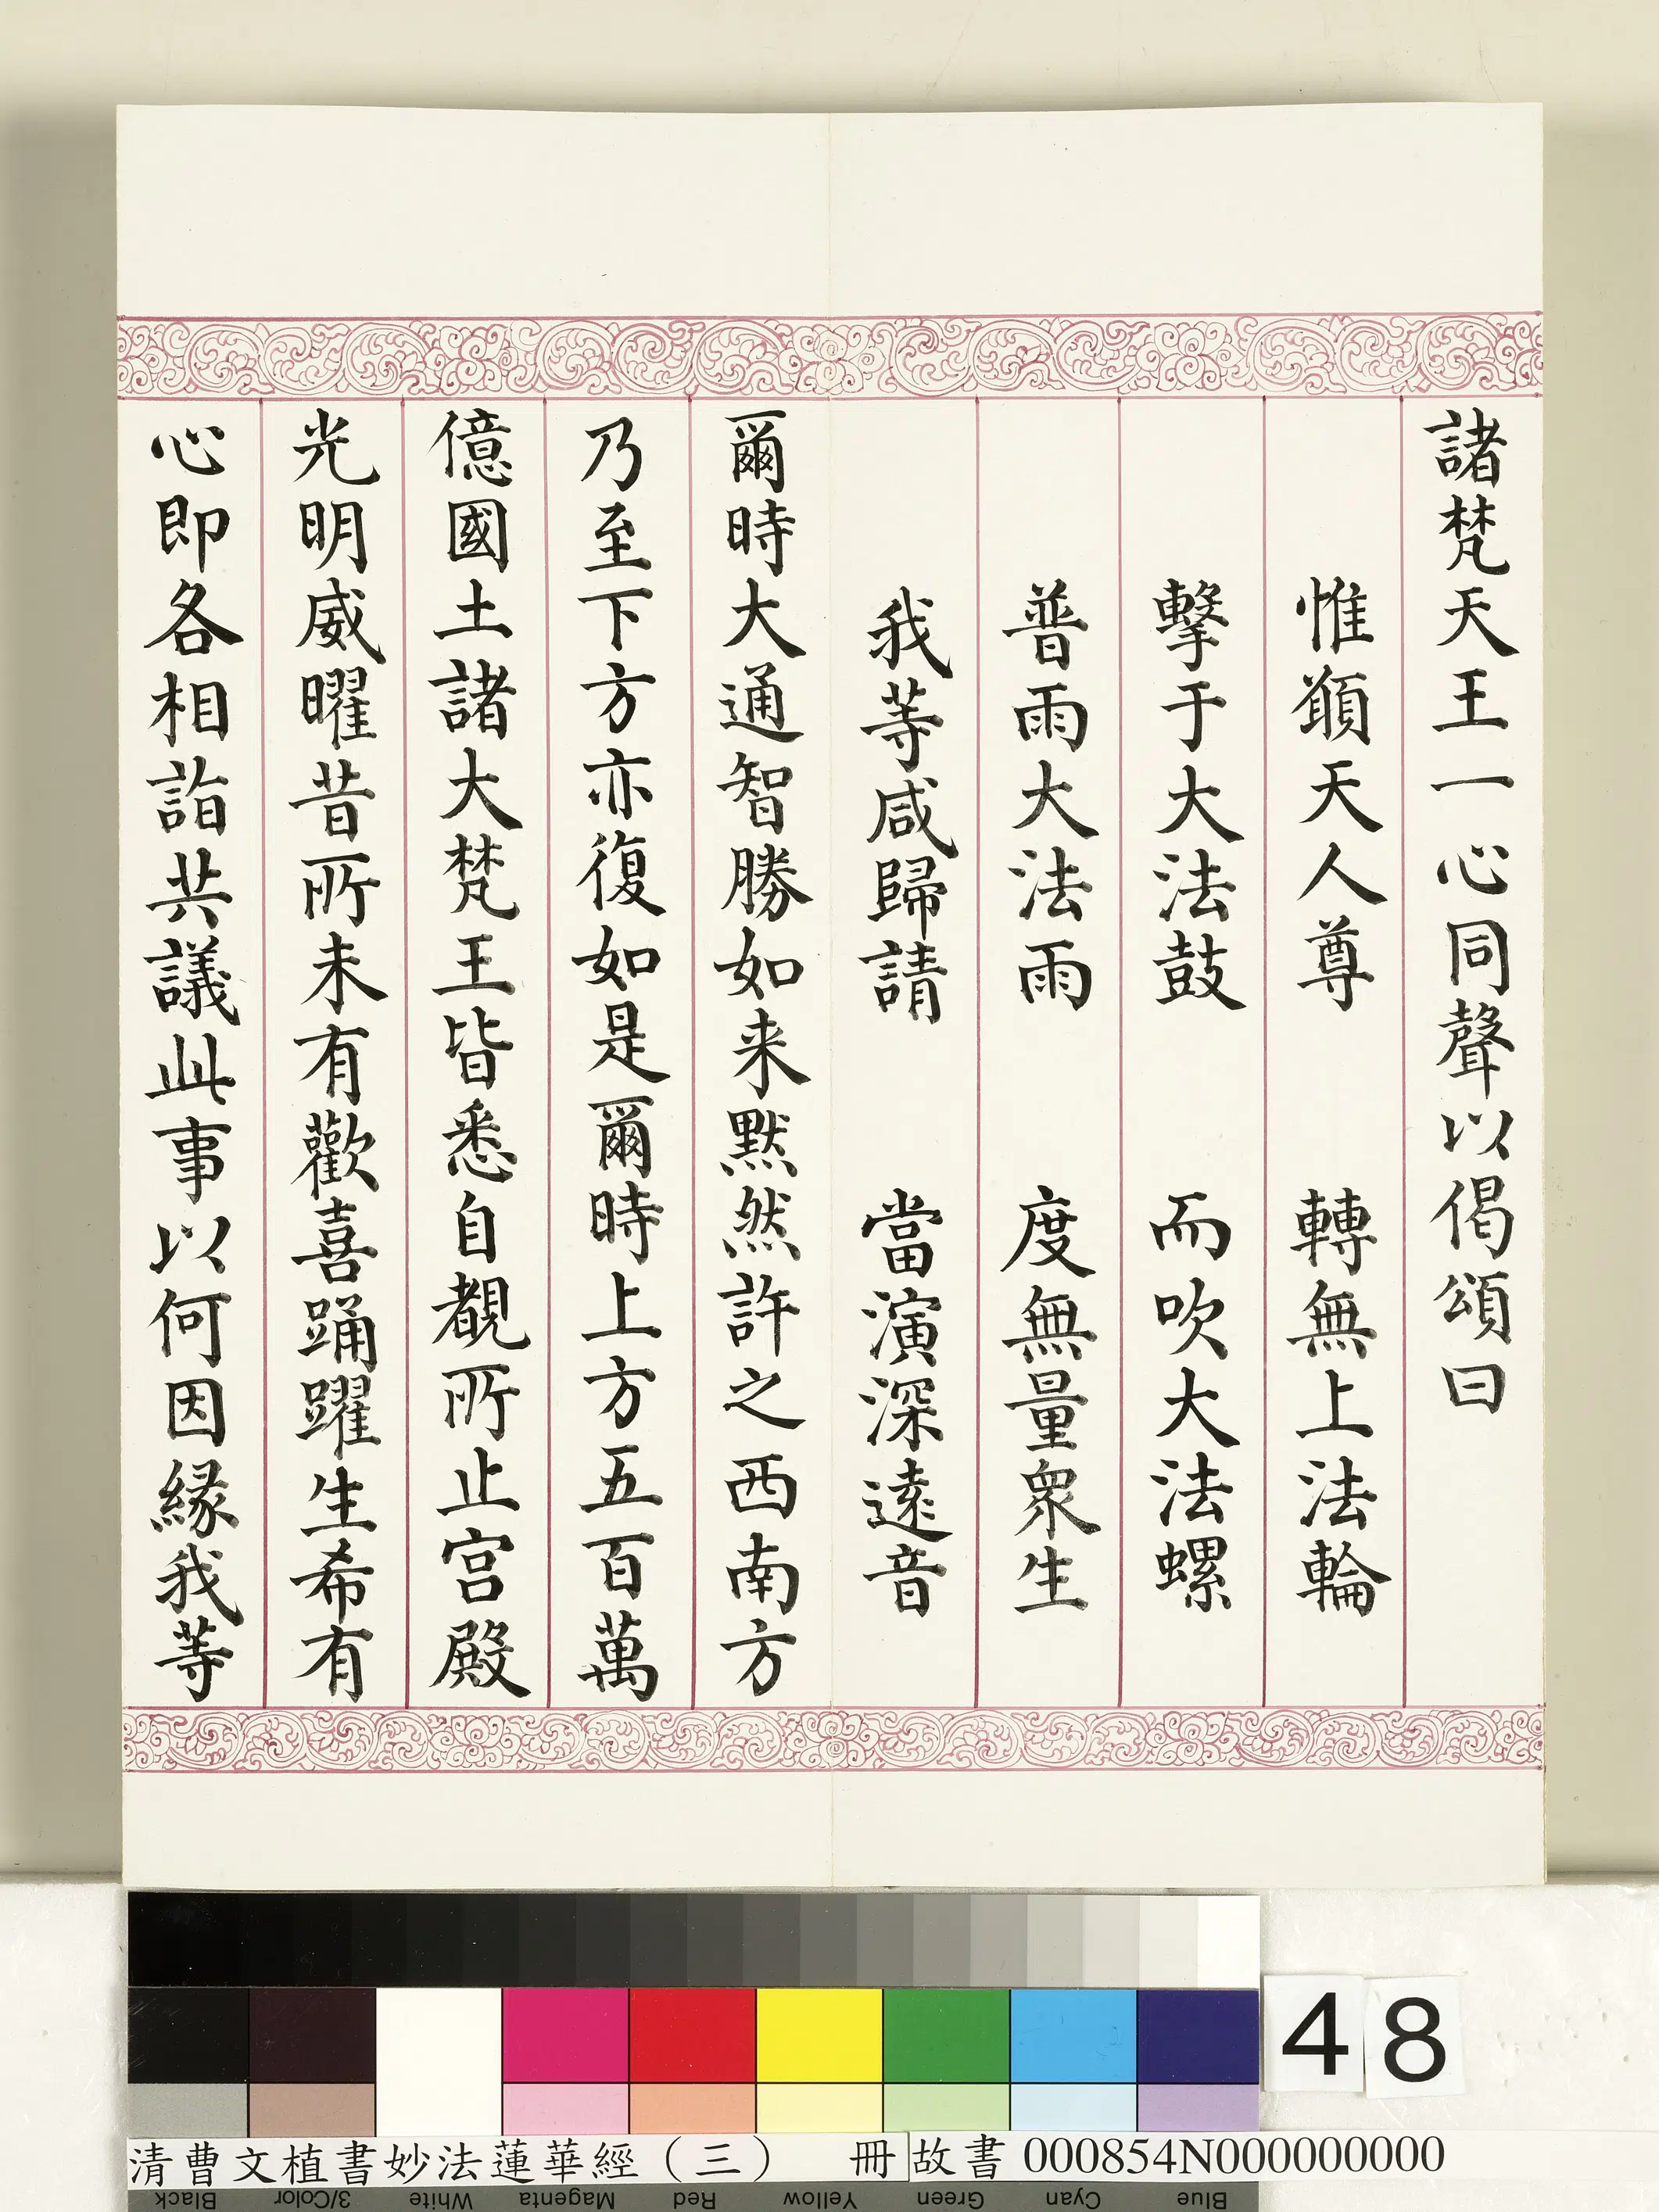 諸梵天王一心同聲以偈頌曰
惟願天人尊　轉無上法輪
擊于大法鼓　而吹大法螺
普雨大法雨　度無量衆生
我等咸歸請　當演深遠音
爾時大通智勝如来黙然許之西南方
乃至下方亦復如是爾時上方五百萬
億國土諸大梵王皆悉自覩所止宫殿
光明威曜昔所未有歡喜踊躍生希有
心即各相詣共議此事以何因縁我等
48
清曹文植書妙法蓮華經（三）　冊 故書 000854N000000000
Black 3/Color White Magenta Red Yellow Green Cyan Blue